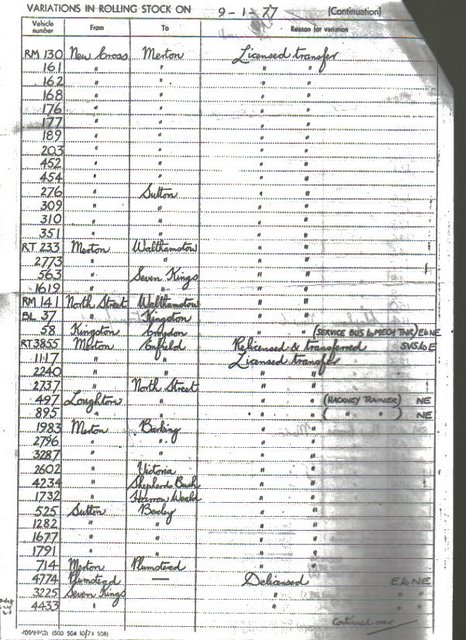 VARIATIONS IN ROLLING STOCK ON 9-1-77 (Continuation)
Vehicle number From To Reason for variation
RM 130 New Cross Merton Licensed transfer
161 " " " "
162 " " " "
168 " " " "
176 " " " "
177 " " " "
189 " " " "
203 " " " "
452 " " " "
454 " " " "
276 " Sutton " "
309 " " " "
310 " " " "
351 " " " "
RT 233 Merton Walthamstow " "
2773 " " " "
563 " Seven Kings " "
1619 " " " "
RM 141 North Street Walthamstow " "
BL 37 " Kingston " "
58 Kingston Croydon " " (SERVICE BUS to MECH TNR) E to NE
RT 3855 Merton Enfield Relicensed & transferred SVS to E
1117 " " Licensed transfer
2240 " " " "
2737 " North Street " "
497 Loughton " " " (HACKNEY TRAINER) NE
895 " " " " ( " " ) NE
1983 Merton Barking " "
2796 " " " "
3287 " " " "
2602 " Victoria " "
4234 " Shepherds Bush " "
1732 " Harrow Weald " "
525 Sutton Bexley " "
1282 " " " "
1677 " " " "
1791 " " " "
714 Merton Plumstead " "
4774 Plumstead — Delicensed E to NE
3225 Seven Kings " "
4433 " " "
Continued over